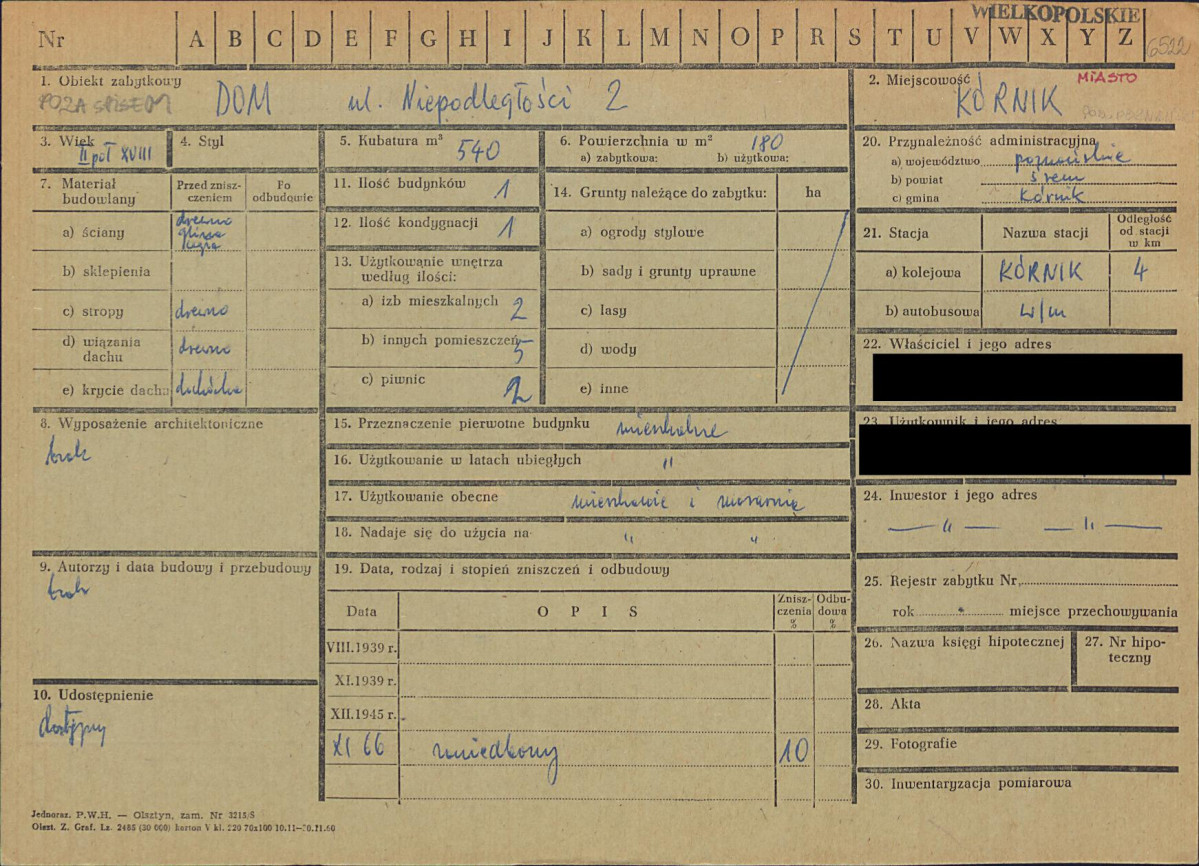 WIELKOPOLSKIE
Nr A B C D E F G H I J K L M N O P R S T U V W X Y Z 6522
1. Obiekt zabytkowy
POZA SPISEM
DOM ul. Niepodległości 2
2. Miejscowość MIASTO
KÓRNIK
3. Wiek
II poł XVIII
4. Styl
5. Kubatura m³ 540
6. Powierzchnia w m² 180
a) zabytkowa: b) użytkowa:
20. Przynależność administracyjna
a) województwo poznańskie
b) powiat śrem
c) gmina Kórnik
7. Materiał budowlany
Przed zniszczeniem
Po odbudowie
a) ściany drewno
glina
cegła
b) sklepienia
c) stropy drewno
d) wiązania dachu drewno
e) krycie dachu dachówka
11. Ilość budynków 1
12. Ilość kondygnacji 1
13. Użytkowanie wnętrza
według ilości:
a) izb mieszkalnych 2
b) innych pomieszczeń 5
c) piwnic 2
14. Grunty należące do zabytku: ha
a) ogrody stylowe
b) sady i grunty uprawne
c) lasy
d) wody
e) inne
21. Stacja
Nazwa stacji
Odległość
od stacji
w km
a) kolejowa KÓRNIK 4
b) autobusowa w/m
22. Właściciel i jego adres
23. Użytkownik i jego adres
8. Wyposażenie architektoniczne
brak
9. Autorzy i data budowy i przebudowy
brak
10. Udostępnienie
dostępny
15. Przeznaczenie pierwotne budynku mieszkalne
16. Użytkowanie w latach ubiegłych "
17. Użytkowanie obecne mieszkanie i
18. Nadaje się do użycia na " "
19. Data, rodzaj i stopień zniszczeń i odbudowy
Data
OPIS
Zniszczenia
%
Odbudowa
%
VIII.1939 r.
XI.1939 r.
XII.1945 r.
XI 66 10
24. Inwestor i jego adres
— " — — " —
25. Rejestr zabytku Nr
rok miejsce przechowywania
26. Nazwa księgi hipotecznej
27. Nr hipoteczny
28. Akta
29. Fotografie
30. Inwentaryzacja pomiarowa
Jednoraz. P.W.H. — Olsztyn, zam. Nr 3215/S
Olszt. Z. Graf. Lz. 2486 (30 000) karton V kl. 220 70x100 10.11—20.11.60